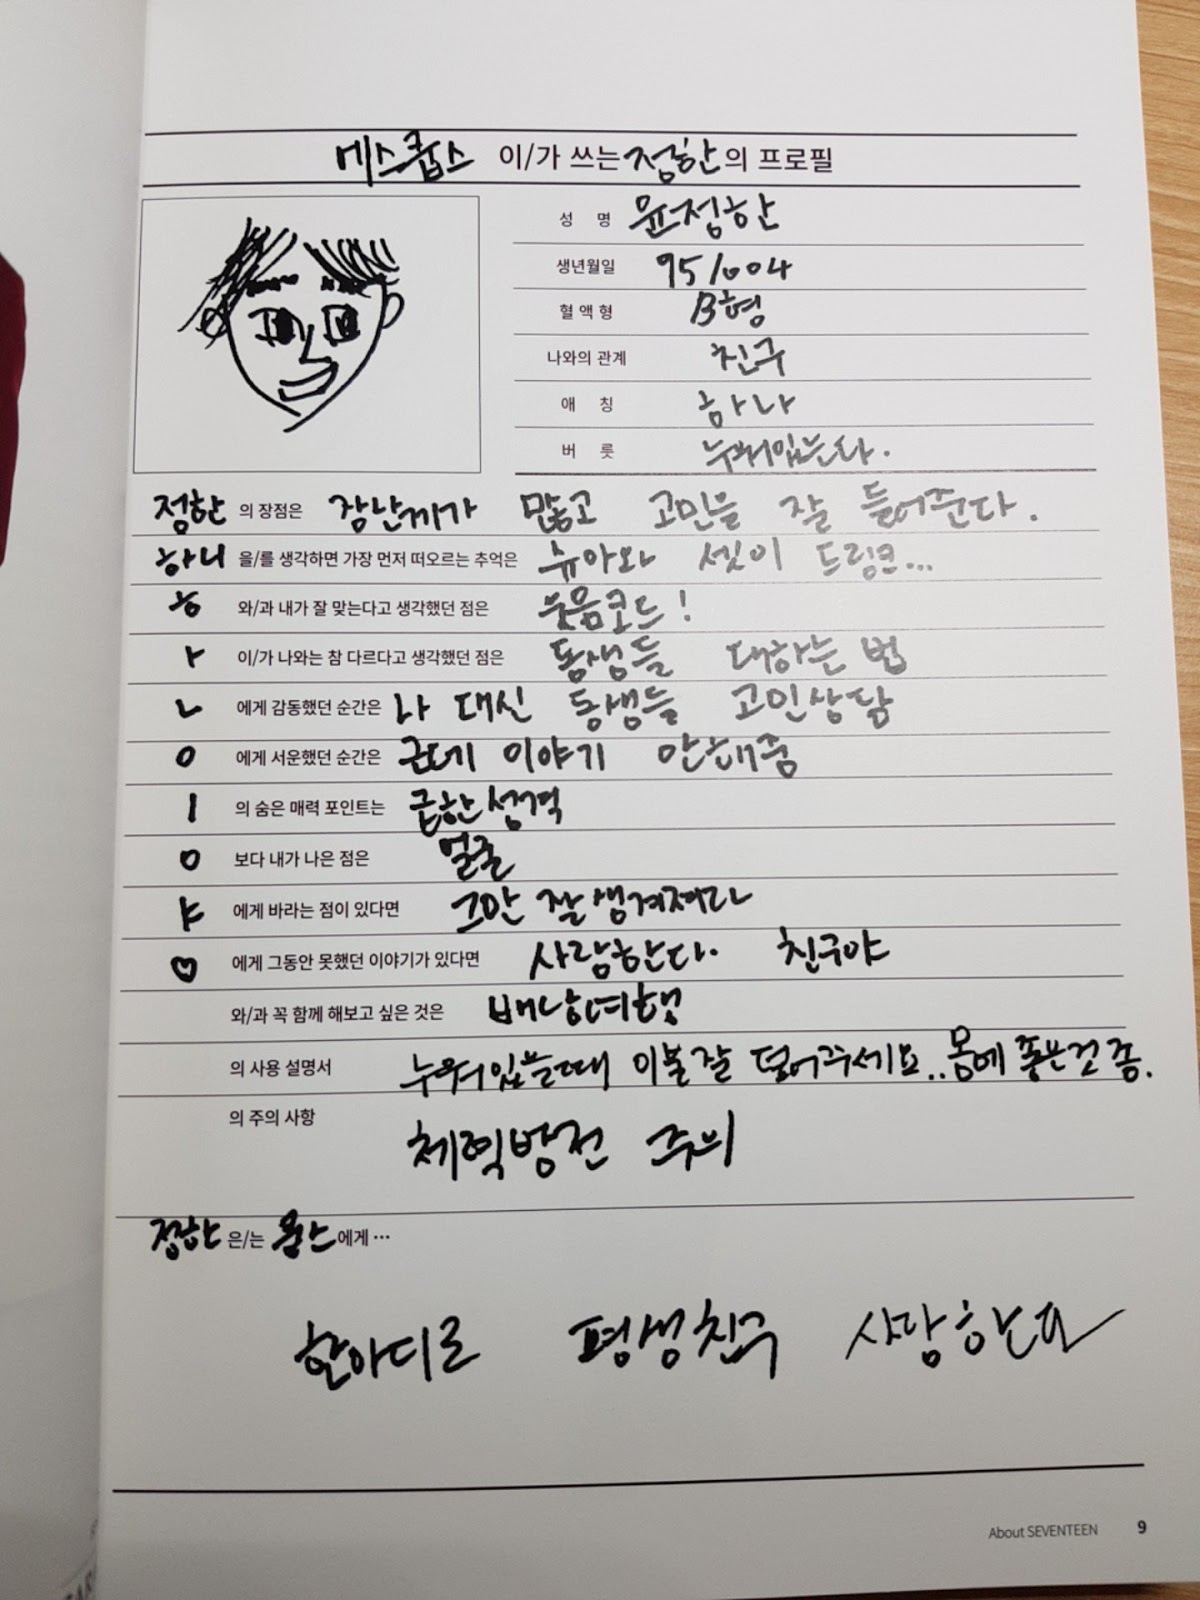 에스쿱스 이/가 쓰는 정한의 프로필
성 명 윤정한
생년월일 951004
혈액형 B형
나와의 관계 친구
애 칭 하나
버 릇 누워있는다.
정한 의 장점은 장난끼가 많고 고민을 잘 들어준다.
하니 을/를 생각하면 가장 먼저 떠오르는 추억은 슈아와 셋이 드링크...
ㅎ 와/과 내가 잘 맞는다고 생각했던 점은 웃음코드!
ㅏ 이/가 나와는 참 다르다고 생각했던 점은 동생들 대하는 법
ㄴ 에게 감동했던 순간은 나 대신 동생들 고민상담
ㅇ 에게 서운했던 순간은 근데 이야기 안해줌
ㅣ 의 숨은 매력 포인트는 급한성격
ㅇ 보다 내가 나은 점은 얼굴
ㅑ 에게 바라는 점이 있다면 그만 잘생겨져라
♡ 에게 그동안 못했던 이야기가 있다면 사랑한다. 친구야
와/과 꼭 함께 해보고 싶은 것은 배낭여행
의 사용 설명서 누워있을때 이불잘 덮어주세요..몸에 좋은것 좀.
의 주의 사항 체력방전 주의
정한 은/는 쿱스 에게 ...
한마디로 평생친구 사랑한다
About SEVENTEEN 9